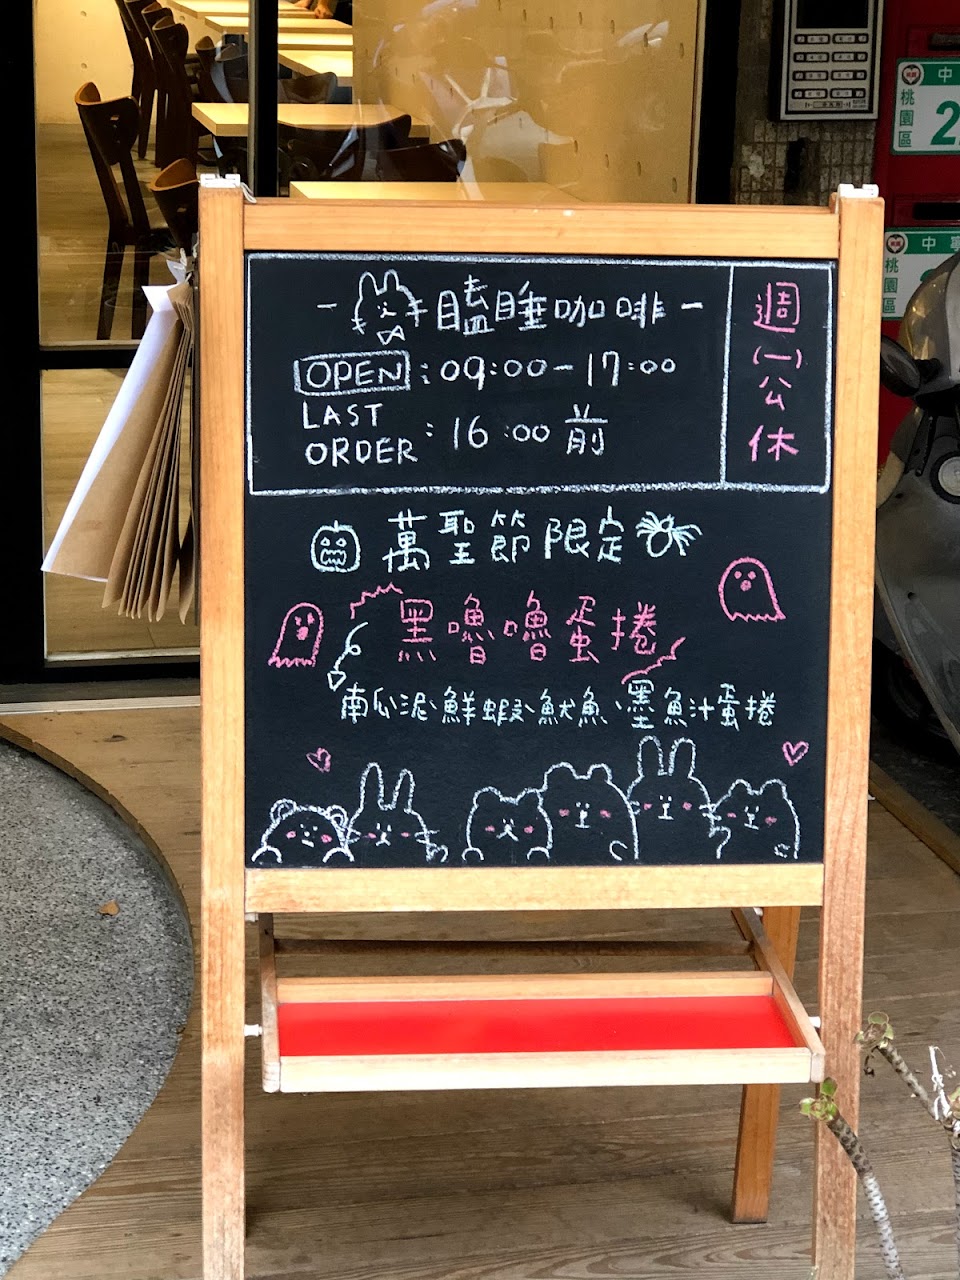 - 瞌睡咖啡 -
OPEN : 09:00-17:00
LAST ORDER : 16:00 前
週(一)公休
萬聖節限定
黑嚕嚕蛋捲
南瓜泥、鮮蝦、魷魚、墨魚汁蛋捲
中
桃園區
2
中寧
桃園區